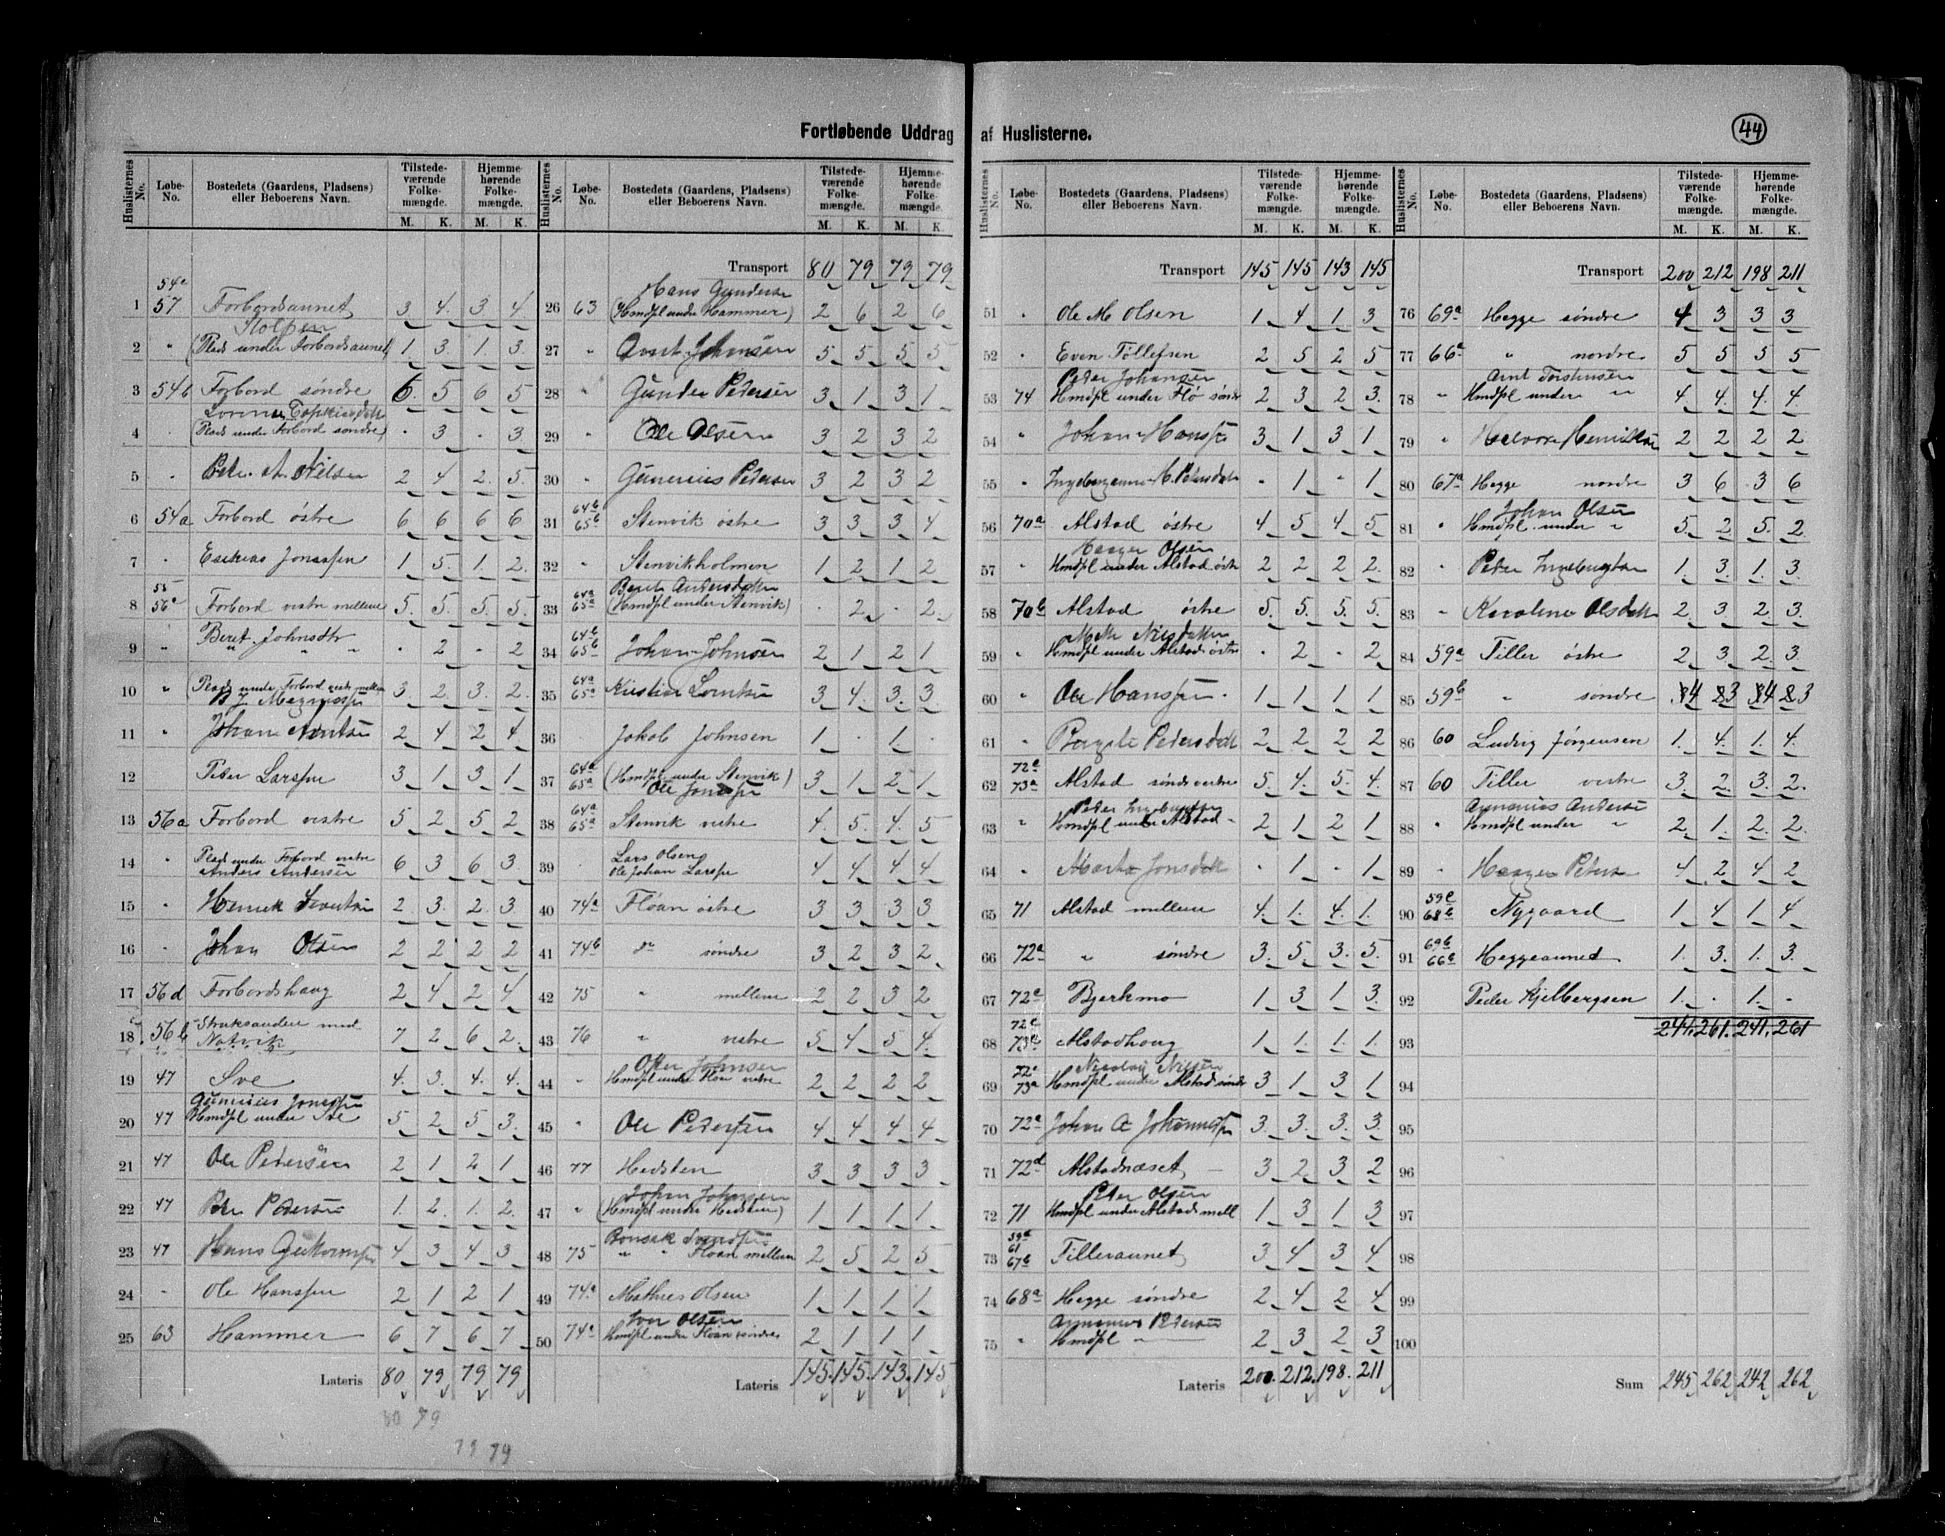 Fortløbende Uddrag af Huslisterne.
44
Huslisternes No. Løbe-No. Bostedets (Gaardens, Pladsens) eller Beboerens Navn. Tilstedeværende Folkemængde. M. K. Hjemmehørende Folkemængde. M. K.
1 54a 57 Forbordsaunet 3 4 3 4
2 " Stolpen (Plads under Forbordsaunet) 1 3 1 3
3 54b Forbord søndre 6 5 6 5
4 (Plads under Forbord søndre) - 3 - 3
5 Nilsen 2 4 2 5
6 54a Forbord östre 6 6 6 6
7 " Esekias Jonassen 1 5 1 2
8 55 56a Forbord vestre mellem 5 5 5 5
9 " Beret Johnsdtr - 2 - 2
10 " Plads under Forbord vestre mellem 3 2 3 2
11 " Johan 2 4 2 4
12 Peter Larsen 3 1 3 1
13 56a Forbord vestre 5 2 5 2
14 " Plads under Forbord vestre Anders Andersen 6 3 6 3
15 " Henrik 2 3 2 3
16 " Johan Olsen 2 2 2 2
17 56d Forbordshaug 2 4 2 4
18 56b med Natvik 7 2 6 2
19 47 Sve 4 3 4 4
20 47 Gunerius Hmdpl under Sve 5 2 5 3
21 47 Ole Pedersen 2 1 2 1
22 47 Pedersen 1 2 1 2
23 47 Hans 4 3 4 3
24 " Ole Hanssen 2 1 2 1
25 63 Hammer 6 7 6 7
Lateris 80 79 79 79
80 79
79 79
Huslisternes No. Løbe-No. Bostedets (Gaardens, Pladsens) eller Beboerens Navn. Tilstedeværende Folkemængde. M. K. Hjemmehørende Folkemængde. M. K.
Transport 80 79 79 79
26 63 Hans Gundersen (Hmdpl under Hammer) 2 6 2 6
27 " Johnsen 5 5 5 5
28 " Gunder Pedersen 3 1 3 1
29 " Ole Olsen 3 2 3 2
30 " Gunerius Pedersen 3 2 3 2
31 64b 65b Stenvik östre 3 3 3 4
32 " Stenvikholmen 1 2 1 2
33 64a 65a Berit Andersdatter (Hmdpl under Stenvik) - 2 - 2
34 64b 65b Johan Johnsen 2 1 2 1
35 64a 65a Kristian Lorntsen 3 4 3 3
36 Jakob Johnsen 1 - 1 -
37 64a 65a (Hmdpl under Stenvik) Ole 3 1 2 1
38 64a 65a Stenvik vestre 4 5 4 5
39 Lars Olsen og Ole Johan Larsen 4 4 4 4
40 74a Floan östre 3 3 3 3
41 74b do søndre 3 2 3 2
42 75 " mellem 2 2 3 2
43 76 " vestre 5 4 5 4
44 " Johnsen Hmdpl under Floan vestre 2 2 2 2
45 " Ole Pedersen 4 4 4 4
46 77 Hedsten 3 3 3 3
47 " Johan Johnsen (Hmdpl under Hedsten) 1 1 1 1
48 75 " " Floan mellem 2 5 2 5
49 74a Mathias Olsen 1 1 1 1
50 74a Iver Olsen Hmdpl under Floan søndre 2 1 1 1
Lateris 145 145 143 145
Huslisternes No. Løbe-No. Bostedets (Gaardens, Pladsens) eller Beboerens Navn. Tilstedeværende Folkemængde. M. K. Hjemmehørende Folkemængde. M. K.
Transport 145 145 143 145
51 " Ole M Olsen 1 4 1 3
52 " Even Tøllefsen 2 5 2 5
53 74 Peder Johansen Hmdpl under Flø søndre 2 3 2 3
54 " Johan Hanssen 3 1 3 1
55 " - 1 - 1
56 70a Alstad östre 4 5 4 5
57 " Haagen Olsen Hmdpl under Alstad östre 2 2 2 2
58 70b Alstad östre 5 5 5 5
59 " Nilsdatter Hmdpl under Alstad östre - 2 - 2
60 " Ole Hanssen 1 1 1 1
61 " Pedersdatter 2 2 2 2
62 72c 73a Alstad søndre vestre 5 4 5 4
63 " Peder Hmdpl under Alstad " 2 1 2 1
64 " Marta Jonsdatter - 1 - 1
65 71 Alstad mellem 4 1 4 1
66 72a " søndre 3 5 3 5
67 72e Bjerkmo 1 3 1 3
68 72c 73b Alstadhaug 1 1 1 1
69 72c 73a Nicolay Nilsen Hmdpl under Alstad søndre 3 1 3 1
70 72a Johan A Johannesen 3 3 3 3
71 72d Alstadnæset 3 2 3 2
72 71 Peter Olsen Hmdpl under Alstad mell 1 3 1 3
73 59a 61 67b Tilleraunet 3 4 3 4
74 68a Hegge søndre 2 4 2 4
75 " Pedersen Hmdpl " 2 3 2 3
Lateris 200 212 198 211
Huslisternes No. Løbe-No. Bostedets (Gaardens, Pladsens) eller Beboerens Navn. Tilstedeværende Folkemængde. M. K. Hjemmehørende Folkemængde. M. K.
Transport 200 212 198 211
76 69a Hegge søndre 4 3 3 3
77 66a " nordre 5 5 5 5
78 " Arnt Torstensen Hmdpl under " 4 4 4 4
79 " Halvor Henriksen 2 2 2 2
80 67a Hegge nordre 3 6 3 6
81 " Johan Olsen Hmdpl under " 5 2 5 2
82 " Peder Ingebrigtsen 1 3 1 3
83 " Karoline Olsdatter 2 3 2 3
84 59a Tiller östre 2 3 2 3
85 59b " søndre 4 3 4 3
86 60 Ludvig Jørgensen 1 4 1 4
87 60 Tiller vestre 3 2 3 2
88 " Andersen Hmdpl under " 2 1 2 2
89 " Haagen Petersen 4 2 4 2
90 59c 68b Nygaard 1 4 1 4
91 69b 66c Heggeaunet 1 3 1 3
92 Peder Kjelbergsen 1 - 1 -
244 261 241 261
93
94
95
96
97
98
99
100
Sum 245 262 242 262